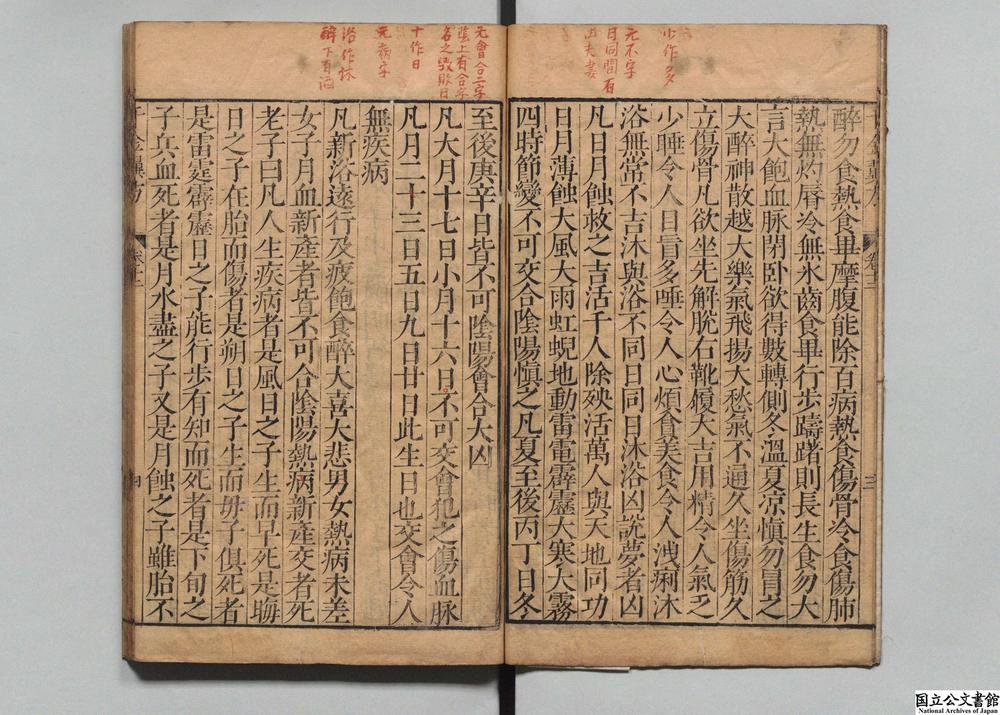 少作多
元不字
月同間有
曲夫妻
醉勿食熱食畢摩腹能除百病熱食傷骨冷食傷肺
熱無灼脣冷無氷齒食畢行步躊躇則長生食勿大
言大飽血脉閉卧欲得數轉側冬溫夏凉慎勿冒之
大醉神散越大樂氣飛揚大愁氣不通久坐傷筋久
立傷骨凡欲坐先解脫右靴履大吉用精令人氣乏
少睡令人目盲多唾令人心煩食美食令人洩痢沐
浴無常不吉沐與浴不同日同日沐浴凶說夢者凶
凡日月蝕救之吉活千人除殃活萬人與天地同功
日月薄蝕大風大雨虹蜺地動雷電霹靂大寒大霧
四時節變不可交合陰陽慎之凡夏至後丙丁日冬
三
元會合二字
陰上有合字
名之毀敗日
十作日
元病字
浴作沐
醉下有酒
至後庚辛日皆不可陰陽會合大凶
凡大月十七日小月十六日不可交會犯之傷血脉
凡月二十三日五日九日廿日此生日也交會令人
無疾病
凡新浴遠行及疲飽食醉大喜大悲男女熱病未差
女子月血新產者皆不可合陰陽熱病新產交者死
老子曰凡人生疾病者是風日之子生而早死是晦
日之子在胎而傷者是朔日之子生而毋子俱死者
是雷霆霹靂日之子能行步有知而死者是下旬之
子兵血死者是月水盡之子又是月蝕之子雖胎不
千金翼方
卷十二
四
国立公文書館
National Archives of Japan